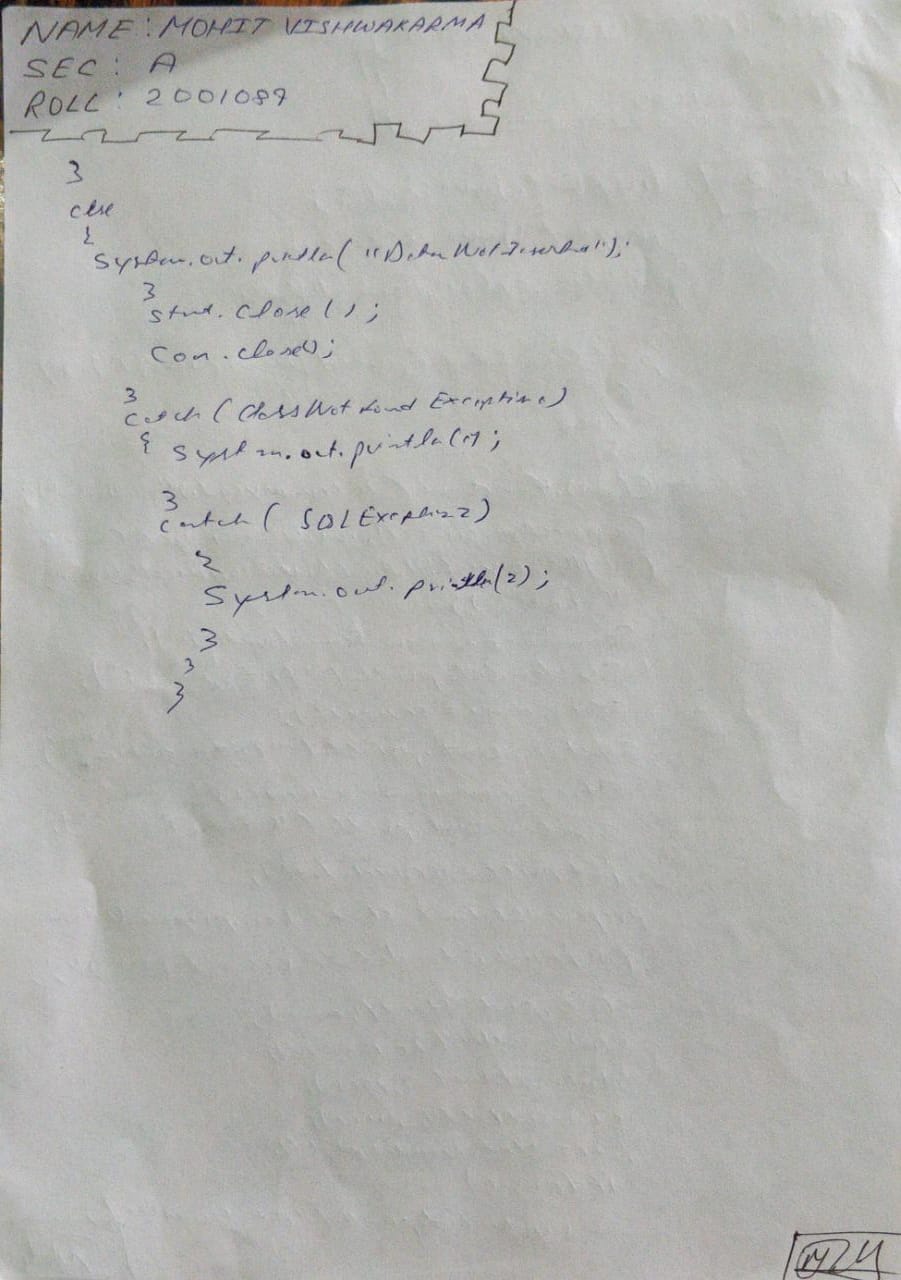 NAME : MOHIT VISHWAKARMA
SEC : A
ROLL : 2001089
}
else
{
System.out.println("Data Not Inserted");
}
stmt.close();
con.close();
}
catch (ClassNotFoundException e)
{ System.out.println(1);
}
catch ( SQLException 2)
{
System.out.println(2);
}
}
}
24